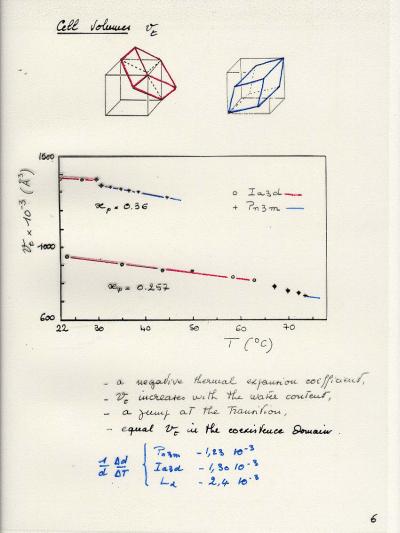 Cell Volumes v_t
1500
1000
600
v_t × 10⁻³ (Å³)
o Ia3d
+ Pn3m
x_p = 0.36
x_p = 0.257
22 30 40 50 60 70
T (°C)
- a negative thermal expansion coefficient,
- v_t increases with the water content,
- a jump at the transition,
- equal v_t in the coexistence domain.
1/d Δd/ΔT { Pn3m - 1,23 10⁻³
Ia3d - 1,30 10⁻³
Lα - 2,4 10⁻³
6